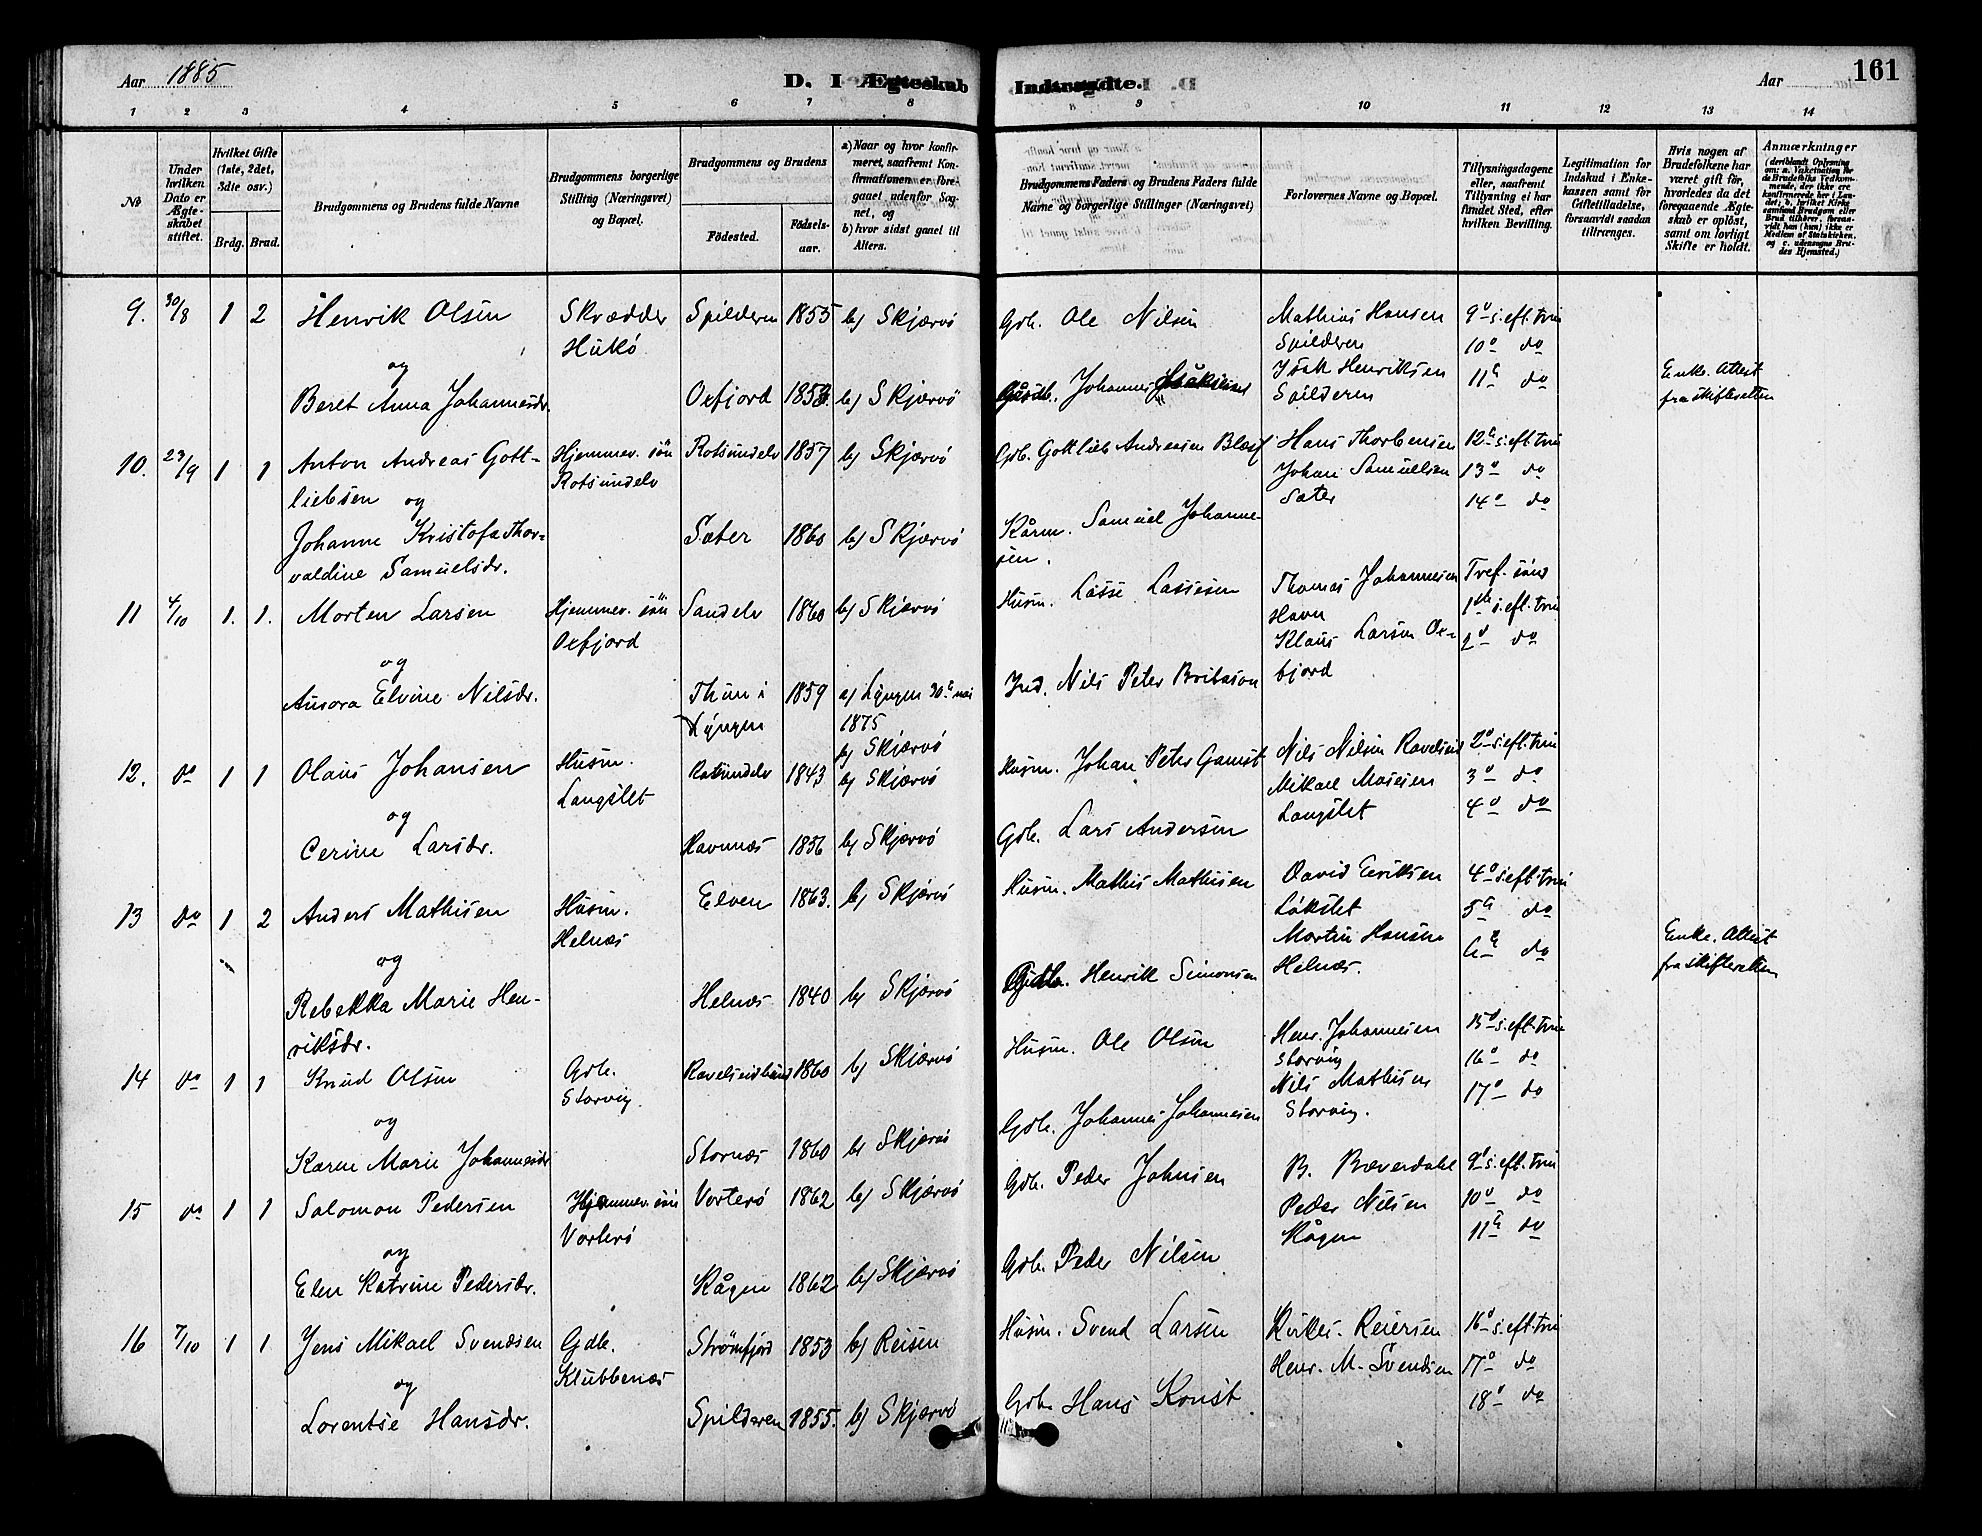 Aar 1885
D. I Ægteskab Indtraadte.
Aar
161
1 2 3 4 5 6 7 8 9 10 11 12 13 14
No
Under hvilken Dato er Ægteskabet stiftet.
Hvilket Gifte (1ste, 2det, 3die osv.)
Brdg. Brud.
Brudgommens og Brudens fulde Navne
Brudgommens borgerlige Stilling (Næringsvei) og Bopæl.
Brudgommens og Brudens
Fødested.
Fødsels-aar.
a) Naar og hvor konfirmeret, saafremt Konfirmationen er foregaaet udenfor Sognet, og
b) hvor sidst gaaet til Alters.
Brudgommens Faders og Brudens Faders fulde Navne og borgerlige Stillinger (Næringsvei)
Forlovernes Navne og Bopæl.
Tillysningsdagene eller, saafremt Tillysning ei har fundet Sted, efter hvilken Bevilling.
Legitimation for Indskud i Enkekassen samt for Giftetilladelse, forsaavidt saadan tiltrænges.
Hvis nogen af Brudefolkene har været gift før, hvorledes da det foregaaende Ægteskab er opløst, samt om lovligt Skifte er holdt.
Anmærkninger
9. 30/8 1 2 Henrik Olsen Skrædder Spilderen 1855 b) Skjærvö Gdb. Ole Nilsen Mathias Hansen 9d s. eft. trin
Hukö Spilderen 10d do
og Isak Henriksen 11te do
Beret Anna Johannesdr. Oxfjord 1853. b) Skjærvö Johannes Isaksen Spilderen Enke. Attest
fra skifteretten
10. 23/9 1 1 Anton Andreas Gott- Hjemmev. sön Rotsundelv 1857 b) Skjærvö Gdb. Gottlieb Andreasen Hans Thorbensen 12te s. eft. trin
liebsen og Rotsundelv Johan Samuelsen 13d do
Sæter 14d do
Johanne Kristofa Thor- Sæter 1860 b) Skjærvö Kårm. Samuel Johanne-
valdine Samuelsdr. sen.
11 4/10 1. 1. Morten Larsen Hjemmev. sön Sandelv 1860 b) Skjærvö Husm. Lasse Lassesen Thomas Johannesen Tref. sönd
Oxfjord Havn 1ste s. eft. trin
og Klaus Larsen Ox- 2d do
fjord
Aurora Elvine Nilsdr. i 1859 a) Lyngen 30te mai Ind. Nils Peter
Lyngen 1875
b) Skjærvö
12. do 1 1 Olaus Johansen Husm. Rotsundelv 1843 b) Skjærvö Husm. Johan Peter Gamst Nils Nilsen Ravelseid 2d s. eft. trin
Langslet Mikael Mosesen 3d do
og Langslet 4d do
Cerine Larsdr. Ravnnæs 1856 b) Skjærvö Gdb. Lars Andersen
13 do 1 2 Anders Mathisen Husm. Elven 1863. b) Skjærvö Husm. Mathis Mathisen David Eriksen 4d s. eft. trin
Helnæs Lökslet 5te do
og Martin Hansen 6te do Enke. Attest
Rebekka Marie Hen- Helnæs 1840 b) Skjærvö Henrik Simonsen Helnæs. fra skifteretten
riksdr.
14 do 1 1 Knud Olsen Gdb. Ravelseidbund 1860 b) Skjærvö Husm. Ole Olsen Henr. Johannesen 15d s. eft. trin
Storvig. Storvig 16d do
og Nils Mathisen 17d do
Karen Marie Johannesdr Stornæs 1860 b) Skjærvö Gdb. Johannes Johannesen Storvig.
15 do 1 1 Salomon Pedersen Hjemmev. sön Vorterö 1862 b) Skjærvö Gdb. Peder Johnsen B. Bæverdahl 9d s. eft. trin
Vorterö Peder Nilsen 10d do
og Kågen 11te do
Elen Katrine Pedersdr. Kågen 1862 b) Skjærvö Gdb. Peder Nilsen
16 7/10 1 1 Jens Mikael Svendsen Gdb. Strömfjord 1853 b) Reisen Husm. Svend Larsen Reiersen 16d s. eft. trin
Klubbenæs Henr. M. Svendsen 17d do
og 18d do
Lorentse Hansdr. Spilderen 1855. b) Skjærvö Gdb. Hans Konst